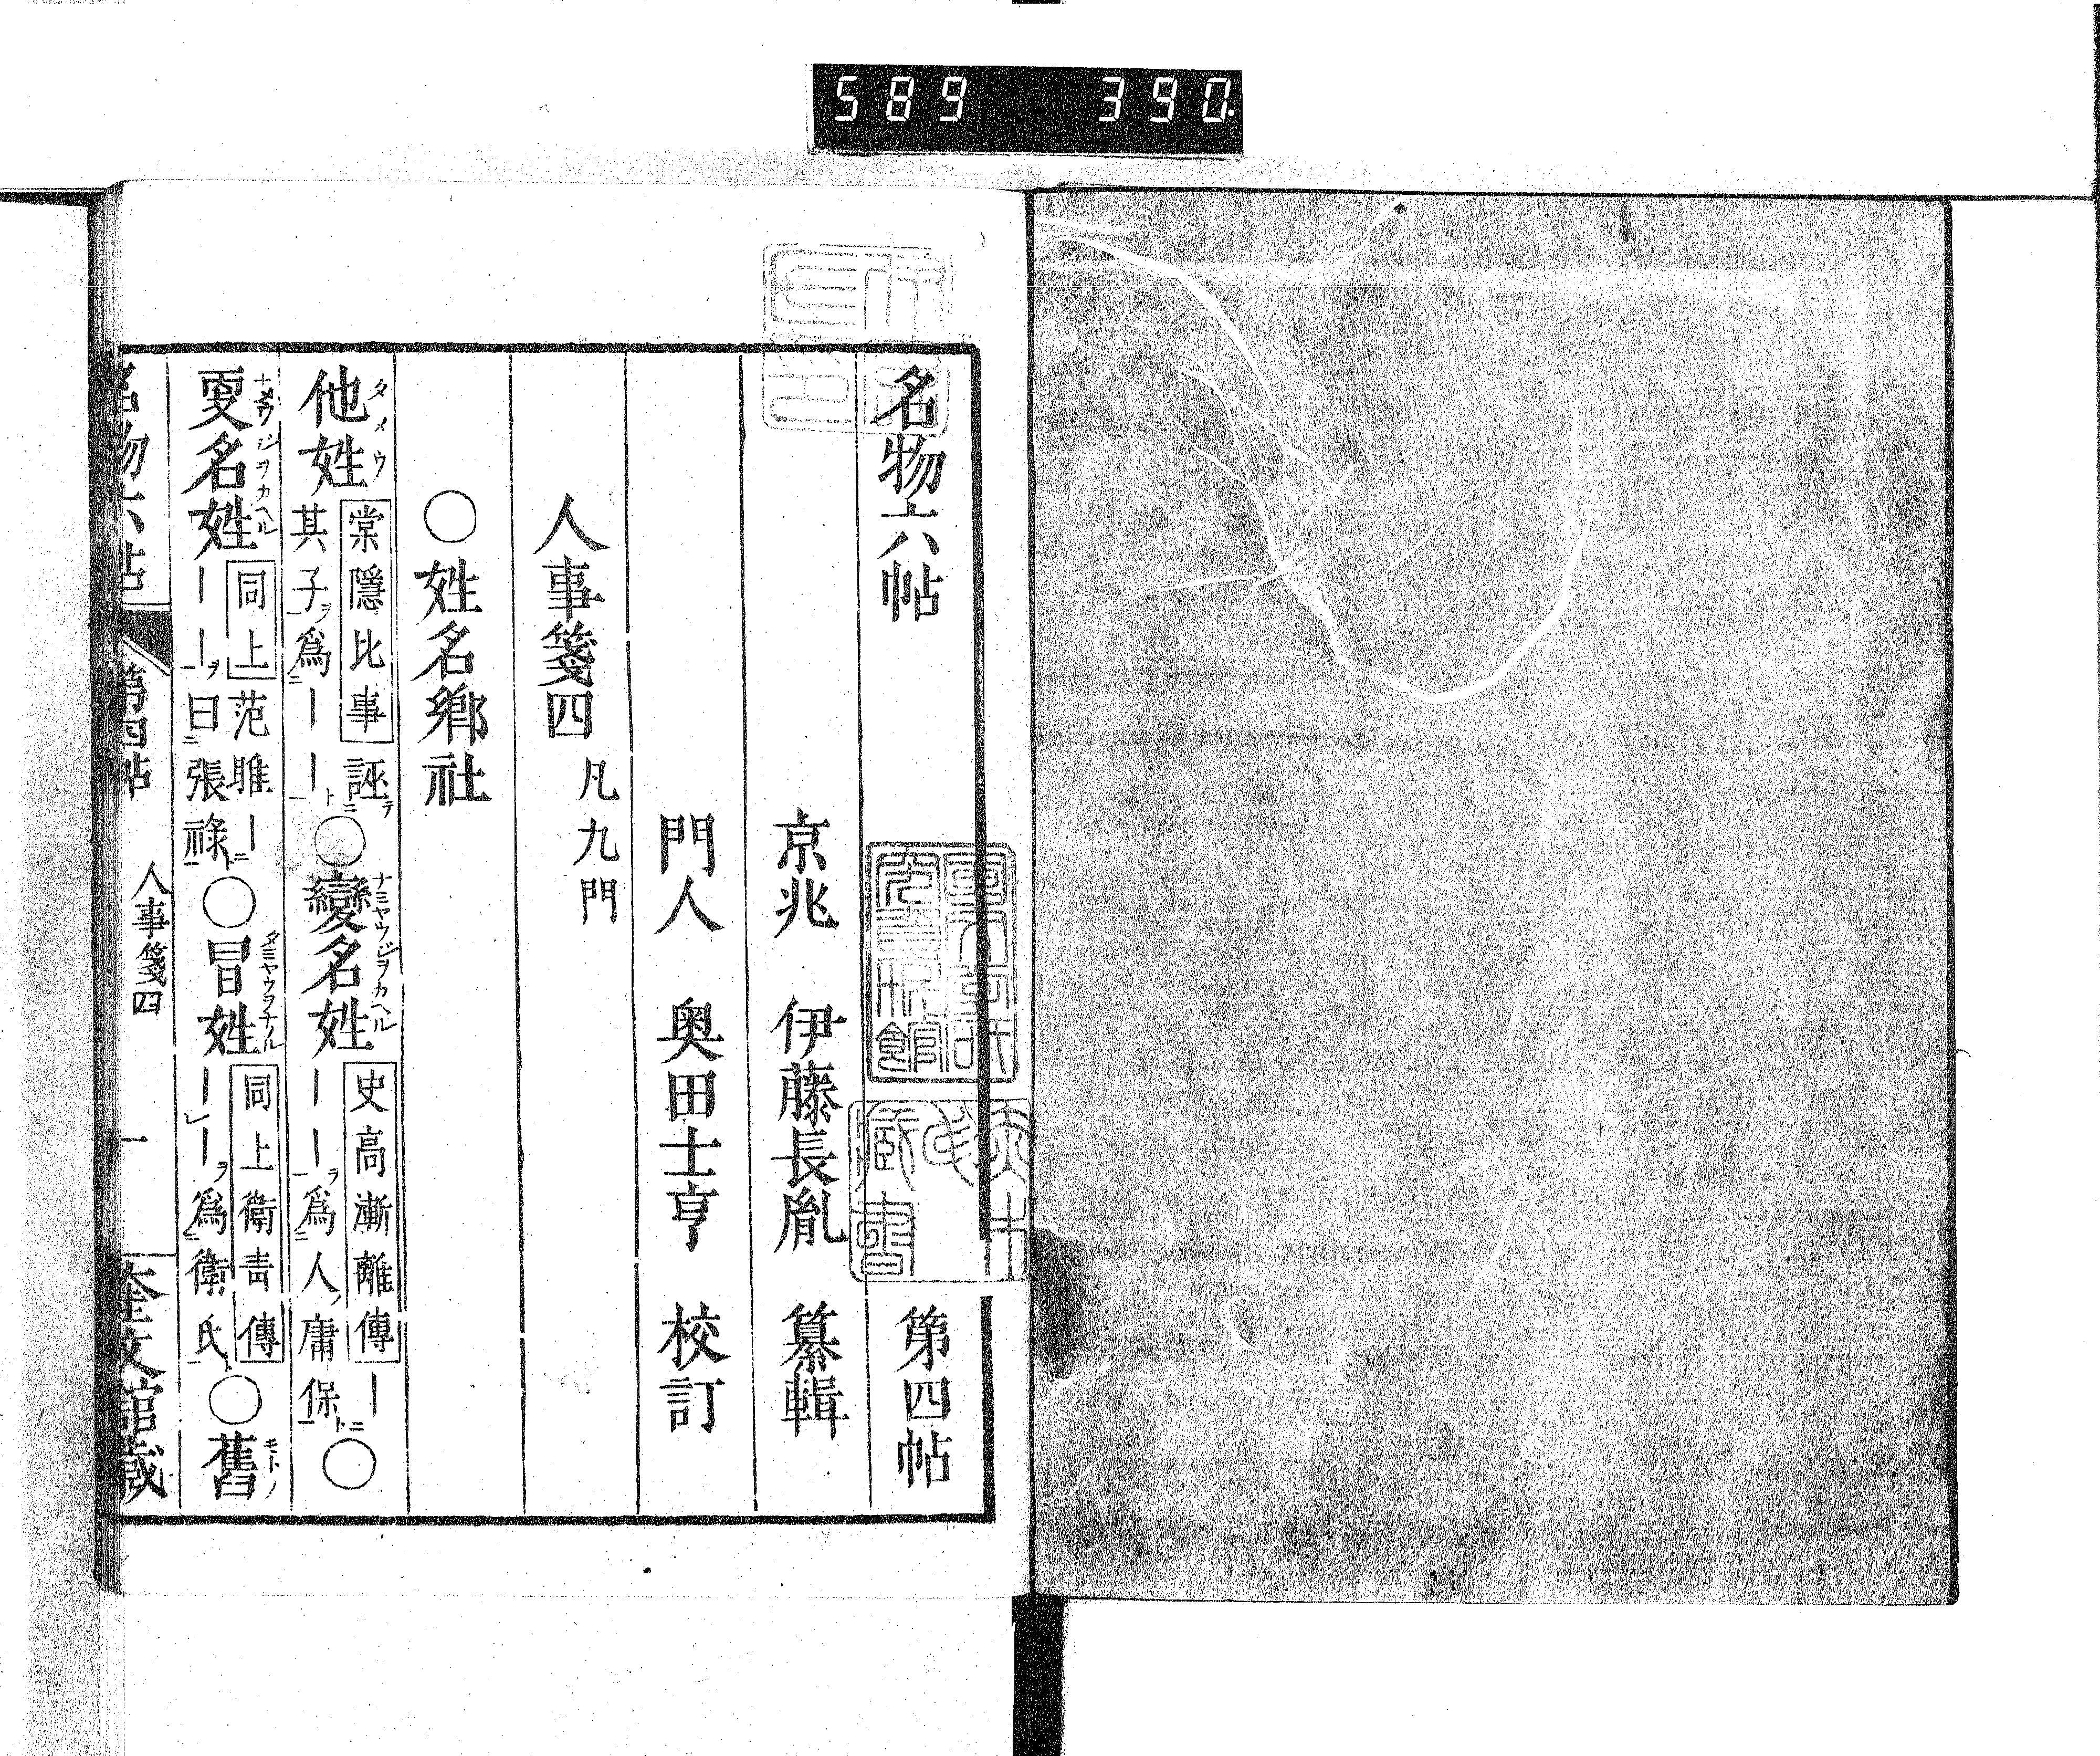 589 390.
名物六帖 第四帖
京兆 伊藤長胤 纂輯
門人 奥田士亨 校訂
人事箋四 凡九門
○姓名鄉社
他姓 タメウ 棠隱比事 誣テ其子ヲ爲ニ一一ト ○變名姓 ナミヤウジヲカヘル 史高漸離傳 一一一ヲ爲ニ人ノ庸保ト ○
更名姓 ナメウジヲカヘル 同上 范雎一一一ヲ曰ニ張祿ト ○冒姓 タミヤウヲナノル 同上衛青傳 一一ヲ爲ニ衛氏ト ○舊 モトノ
名物六帖 第四帖 人事箋四 一 奎文館藏